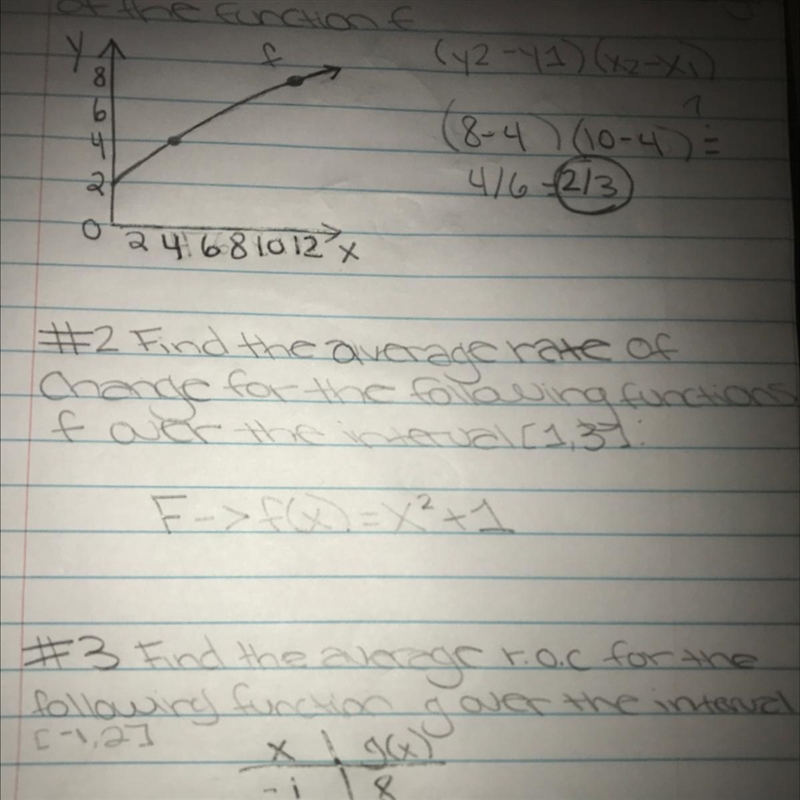 of the function f
y
f
8
6
4
2
0
2 4 6 8 10 12 x
(y2-y1)(x2-x1)
(8-4) (10-4) =
4/6 = 2/3
#2 Find the average rate of
change for the following functions
f over the interval [1,3].
F -> f(x) = x² + 1
#3 Find the average r.o.c for the
following function g over the interval
[-1,2]
x | g(x)
-1 | 8